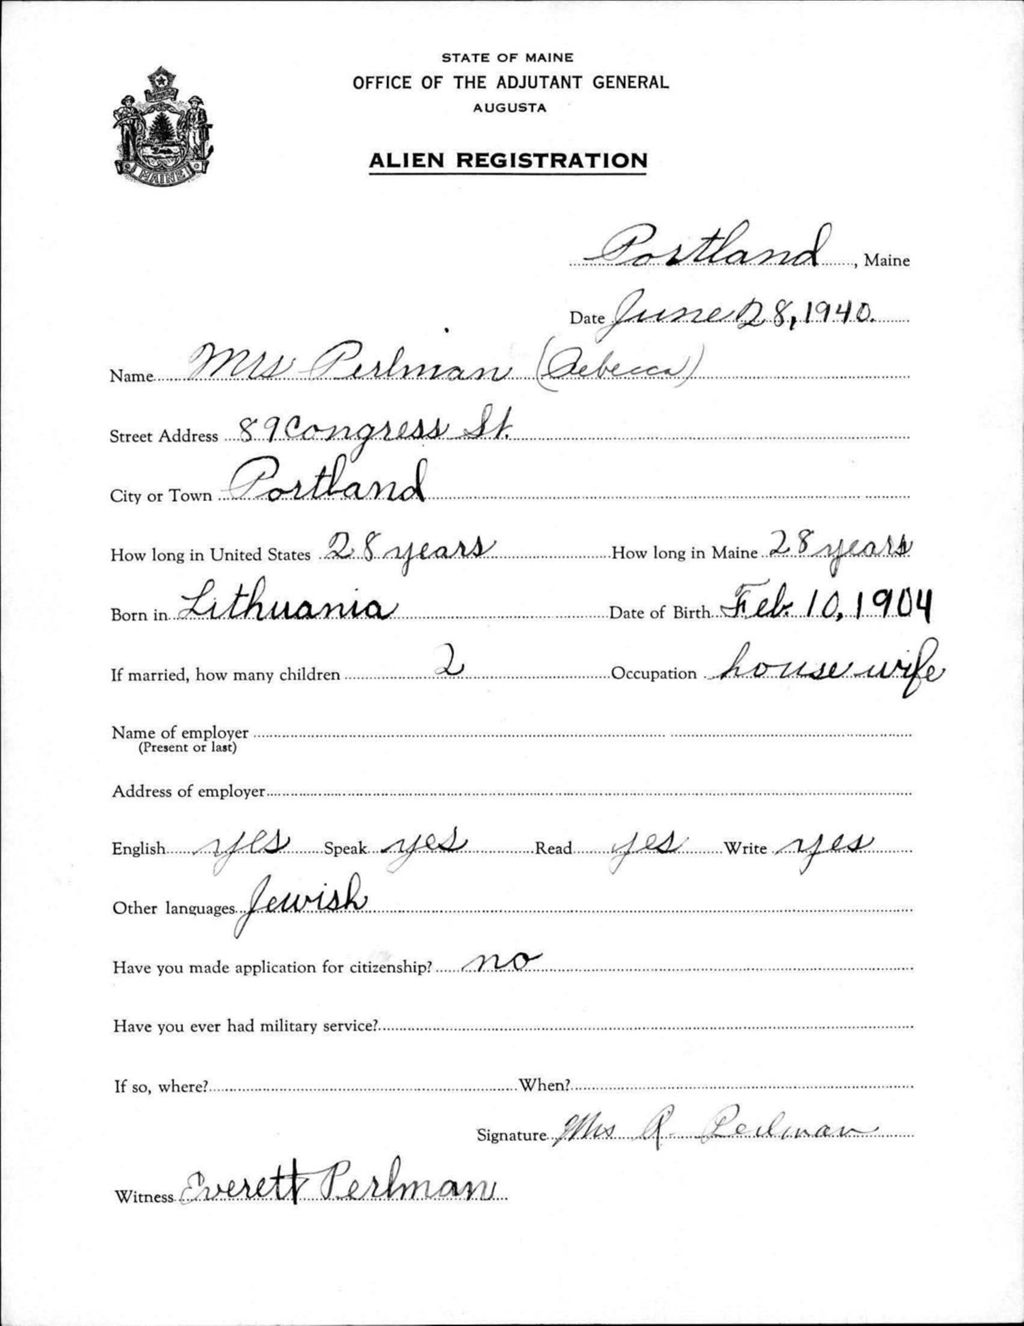 STATE OF MAINE
OFFICE OF THE ADJUTANT GENERAL
AUGUSTA
ALIEN REGISTRATION
MAINE
Portland, Maine
Date June 28, 1940.
Name Mrs Perlman (Rebecca)
Street Address 89 Congress St.
City or Town Portland
How long in United States 28 years How long in Maine 28 years
Born in Lithuania Date of Birth Feb. 10, 1904
If married, how many children 2 Occupation house wife
Name of employer
(Present or last)
Address of employer
English yes Speak yes Read yes Write yes
Other languages Jewish
Have you made application for citizenship? no
Have you ever had military service?
If so, where? When?
Signature Mrs R Perlman
Witness Everett Perlman